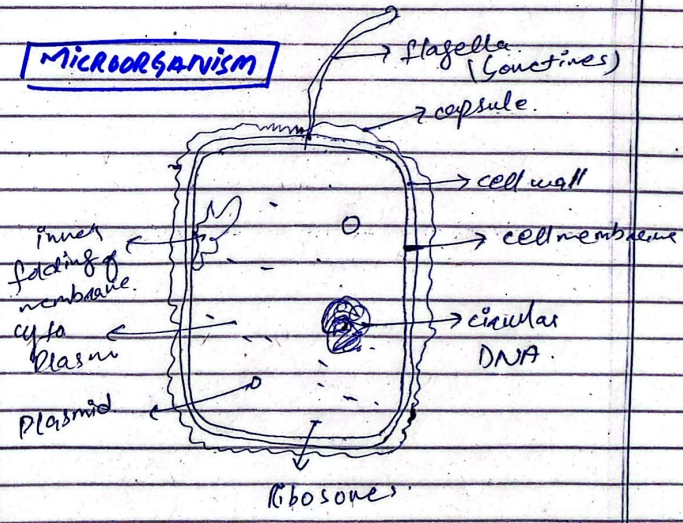 MICROORGANISM
flagella
(Sometimes)
capsule.
cell wall
cell membrane
circular
DNA.
inner
folding of
membrane.
cyto
plasm
Plasmid
Ribosomes.